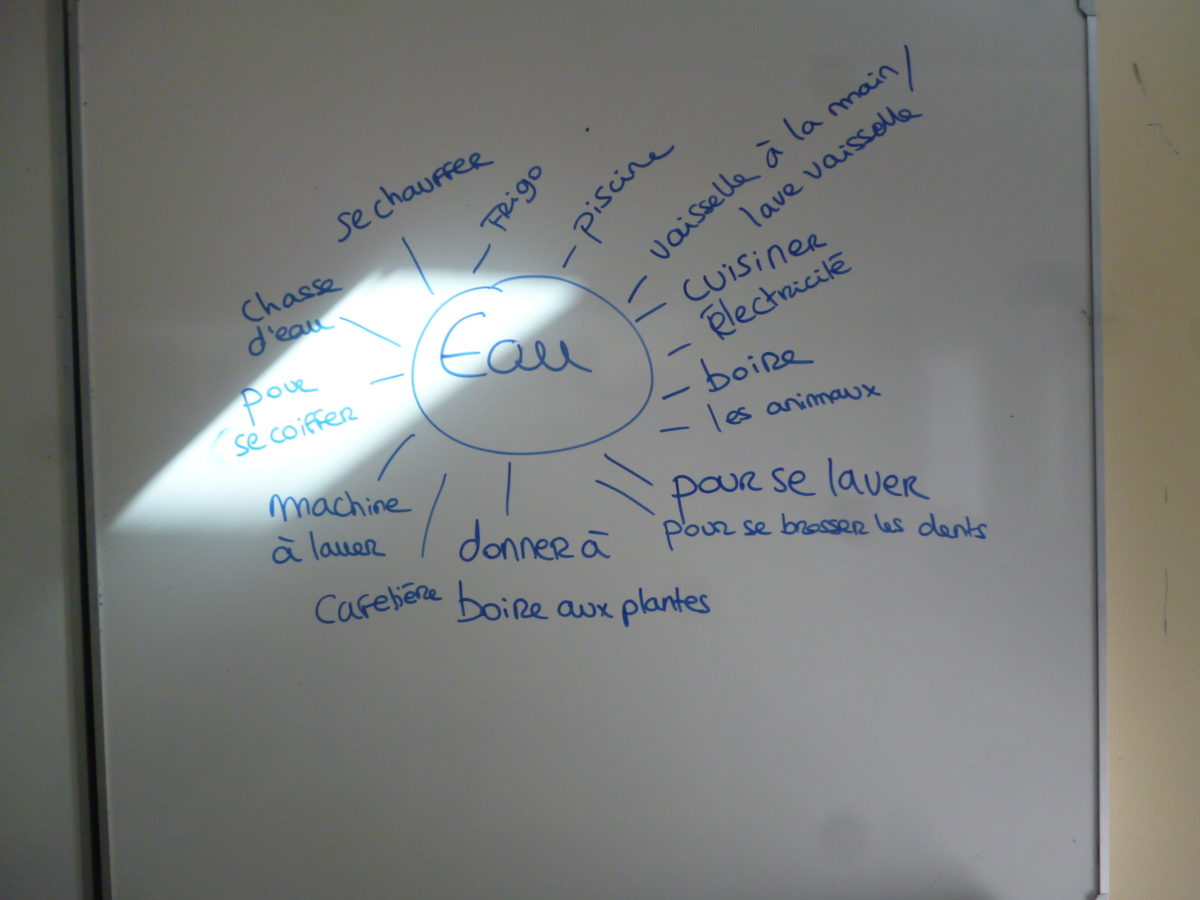 Eau
se chauffer
Frigo
piscine
vaisselle à la main /
lave vaisselle
cuisiner
électricité
boire
les animaux
pour se laver
pour se brosser les dents
donner à
boire aux plantes
cafetière
machine
à laver
pour
se coiffer
chasse
d'eau